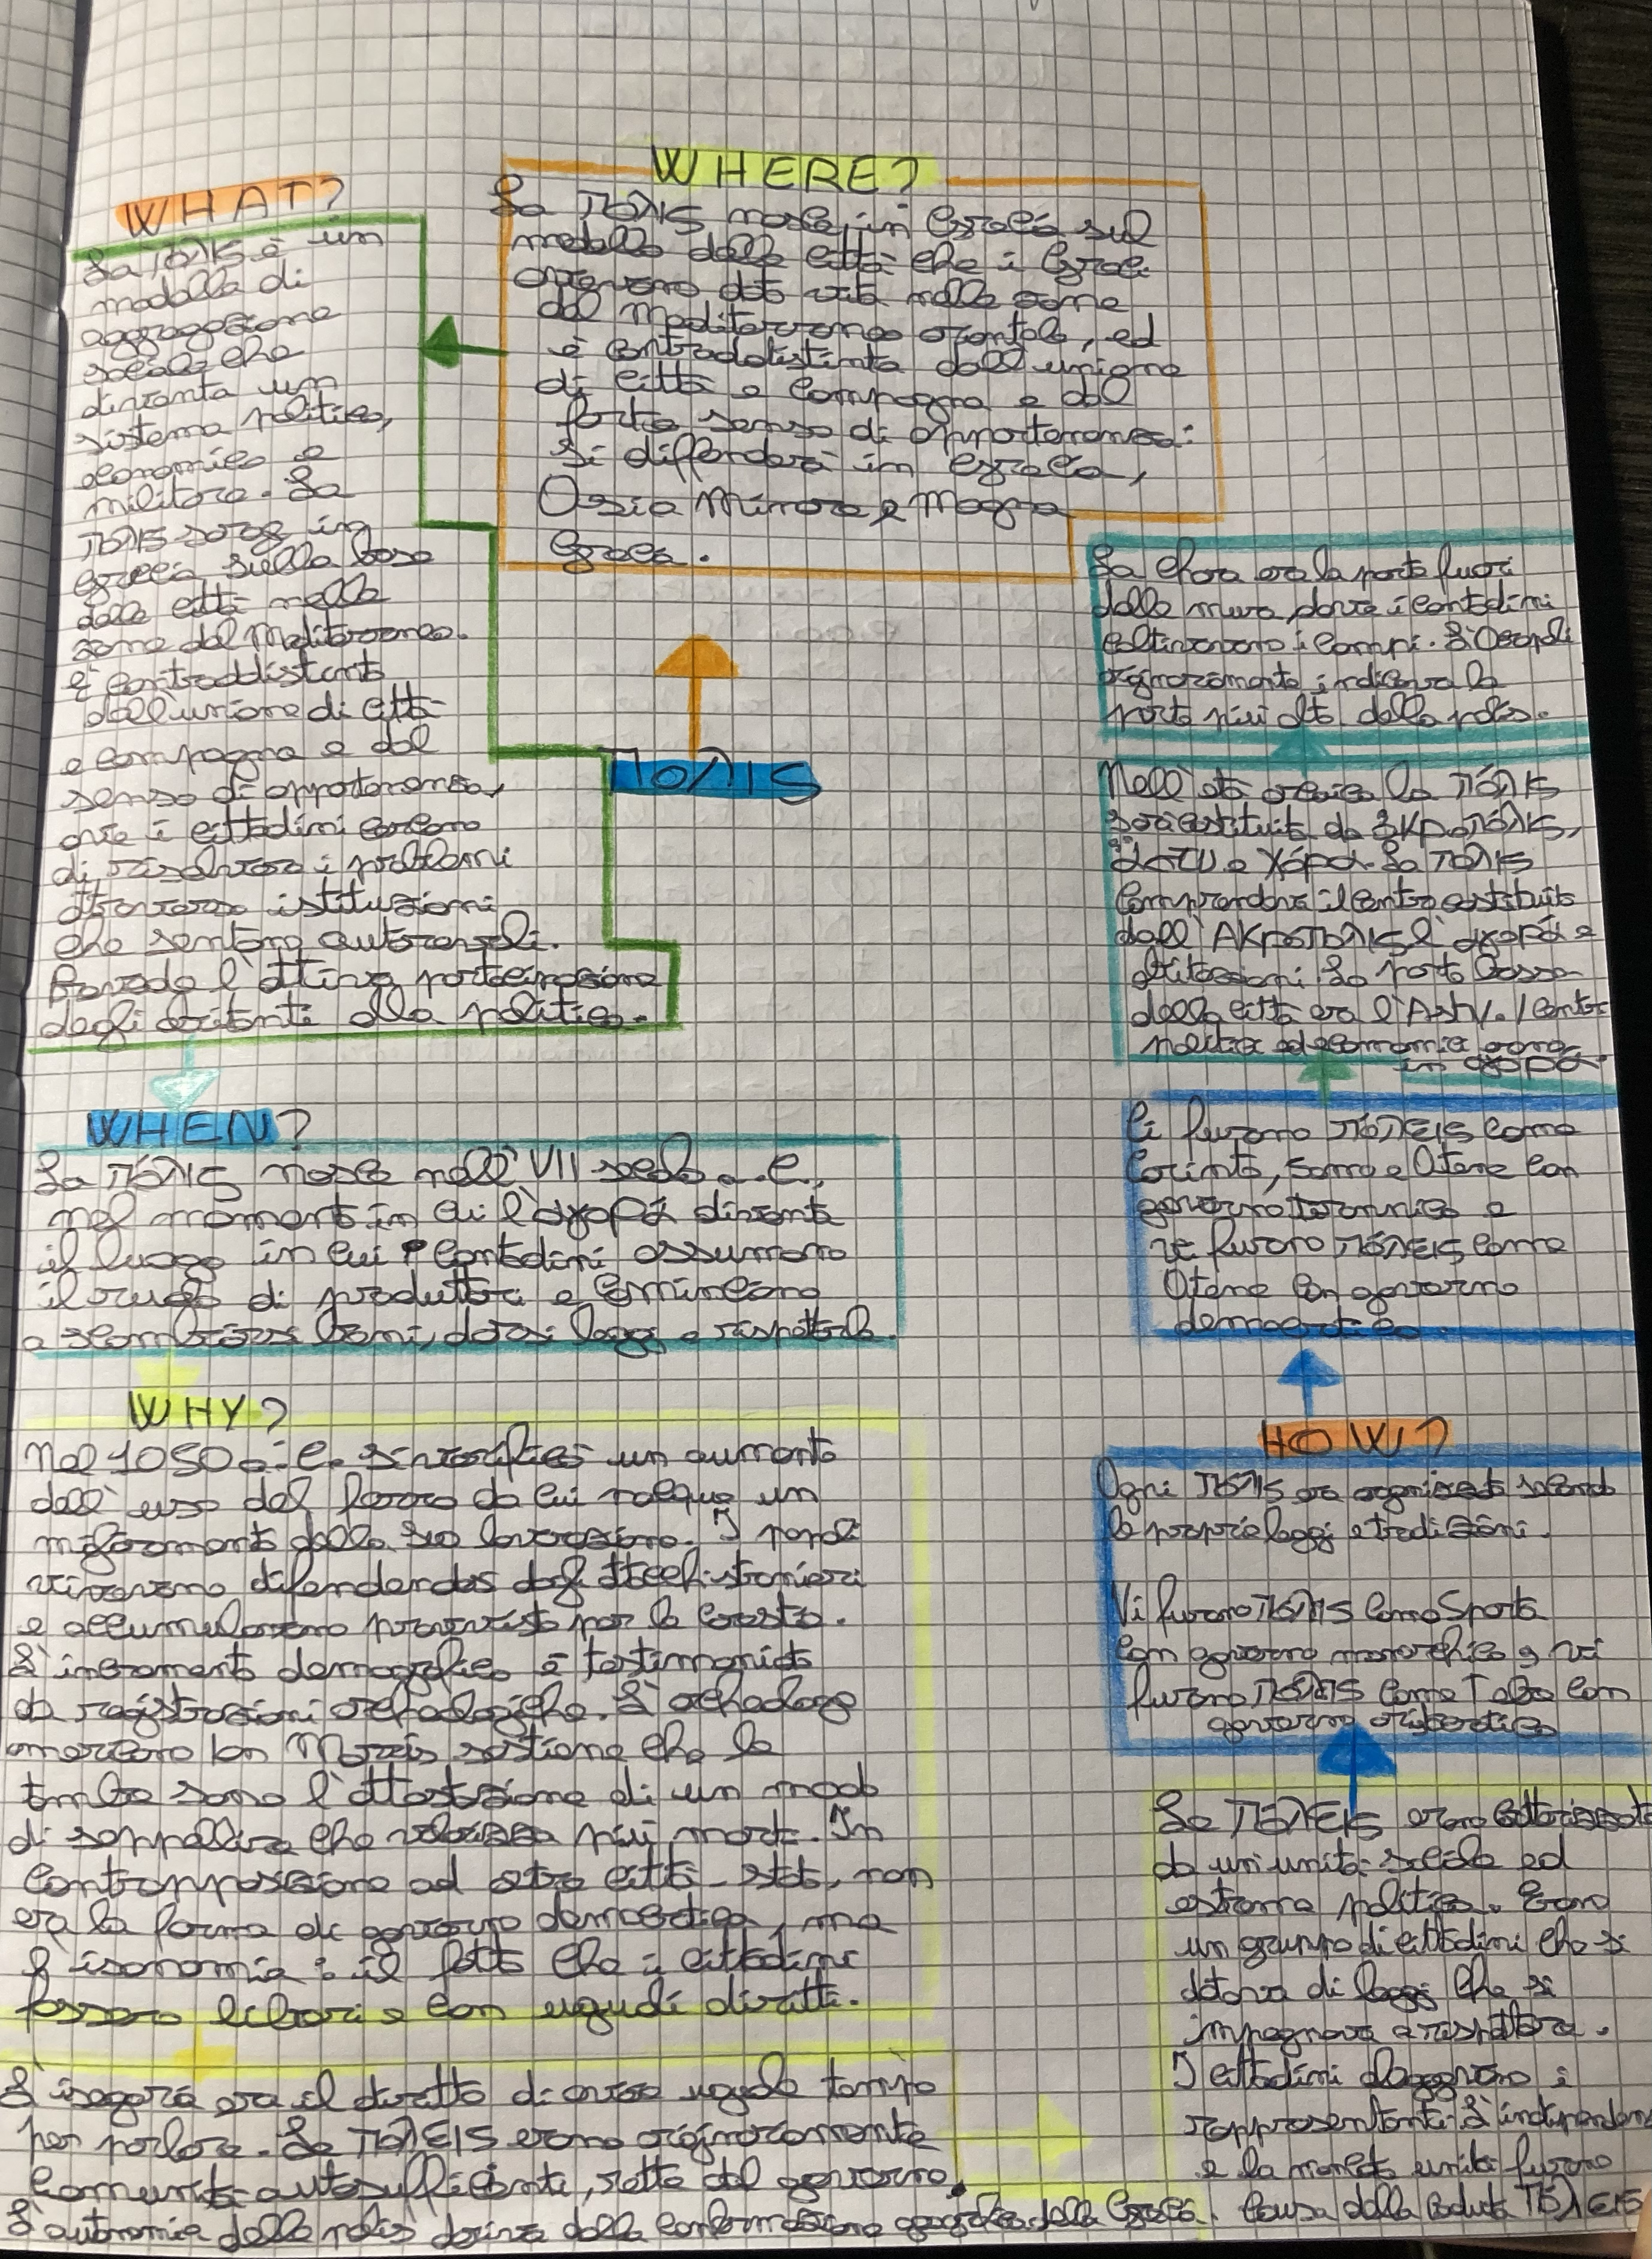 WHERE?
La πόλις nasce in Grecia sul
modello delle città che i Greci
avevano dato vita nelle zone
del Mediterraneo orientale, ed
è contraddistinta dall'unione
di città e campagna e dal
forte senso di appartenenza:
si diffonderà in Grecia,
Asia Minore e Magna
Grecia.
WHAT?
La πόλις è un
modello di
aggregazione
sociale che
diventa un
sistema politico,
economico e
militare. La
πόλις sorge in
Grecia sulla base
delle città nelle
zone del Mediterraneo.
È contraddistinta
dall'unione di città
e campagna e dal
senso di appartenenza,
ove i cittadini cercano
di risolvere i problemi
attraverso istituzioni
che sentono autorevoli.
Prevede l'attiva partecipazione
degli abitanti alla politica.
πολις
WHEN?
La πόλις nasce nell'VII secolo a.C.,
nel momento in cui l'ἀγορά diventa
il luogo in cui i contadini assumono
il ruolo di produttori e cominciano
a scambiarsi beni, darsi leggi e rispettarle.
WHY?
Nel 1050 a.C. si verificò un aumento
dell'uso del ferro da cui nacque un
miglioramento della sua lavorazione. I popoli
vivevano difendendosi dagli attacchi stranieri
e accumulavano provviste per la crescita.
L'incremento demografico è testimoniato
da registrazioni archeologiche. L'archeologo
americano Ian Morris sostiene che le
tombe sono l'attestazione di un modo
di seppellire che valorizza più morti. In
contrapposizione ad altre città-stato, non
era la forma di governo democratica, ma
l'isonomia: il fatto che i cittadini
fossero liberi e con uguali diritti.
L'isegoria era il diritto di avere uguale tempo
per parlare. Le πόλεις erano originariamente
comunità autosufficienti, rette dal governo.
L'autonomia delle polis deriva dalla conformazione geografica della Grecia.
Le πόλεις erano caratterizzate
da un'unità sociale ed
estrema politica. Erano
un gruppo di cittadini che si
dotava di leggi che si
impegnava a rispettare.
I cittadini eleggevano i
rappresentanti. L'indipendenza
e la moneta unita furono
causa della caduta πόλεις
HOW?
Ogni πόλις era organizzata secondo
le proprie leggi e tradizioni.
Vi furono πόλις come Sparta
con governo monarchico e vi
furono πόλις come Tebe con
governo aristocratico
Ci furono πόλεις come
Corinto, Samo e Atene con
governo tirannico e
vi furono πόλεις come
Atene con governo
democratico.
Nell'età arcaica la πόλις
sarà costituita da ἀκρόπολις,
ἄστυ e χώρα. La πόλις
comprendeva il centro costituito
dall'ἀκρόπολις l'ἀγορά e
abitazioni. La parte bassa
della città era l'Asty. I centri
politica ed economia erano
in ἀγορά.
La chora era la parte fuori
dalle mura, dove i contadini
coltivavano i campi. L'Acropoli
originariamente indicava la
parte più alta della polis.